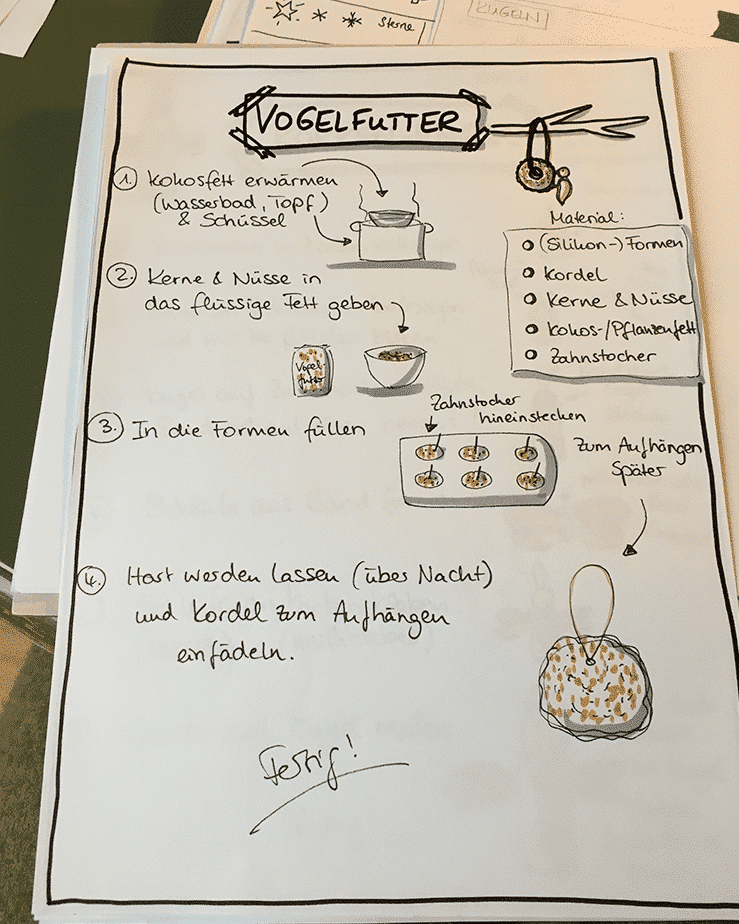 Sterne
KUGELN
VOGELFUTTER
1. Kokosfett erwärmen
(Wasserbad, Topf)
& Schüssel
Material:
(Silikon-) Formen
Kordel
Kerne & Nüsse
Kokos-/Pflanzenfett
Zahnstocher
2. Kerne & Nüsse in
das flüssige Fett geben
Vogel-
futter
3. In die Formen füllen
Zahnstocher
hineinstecken
zum Aufhängen
Später
4. Hart werden lassen (über Nacht)
und Kordel zum Aufhängen
einfädeln.
Fertig!